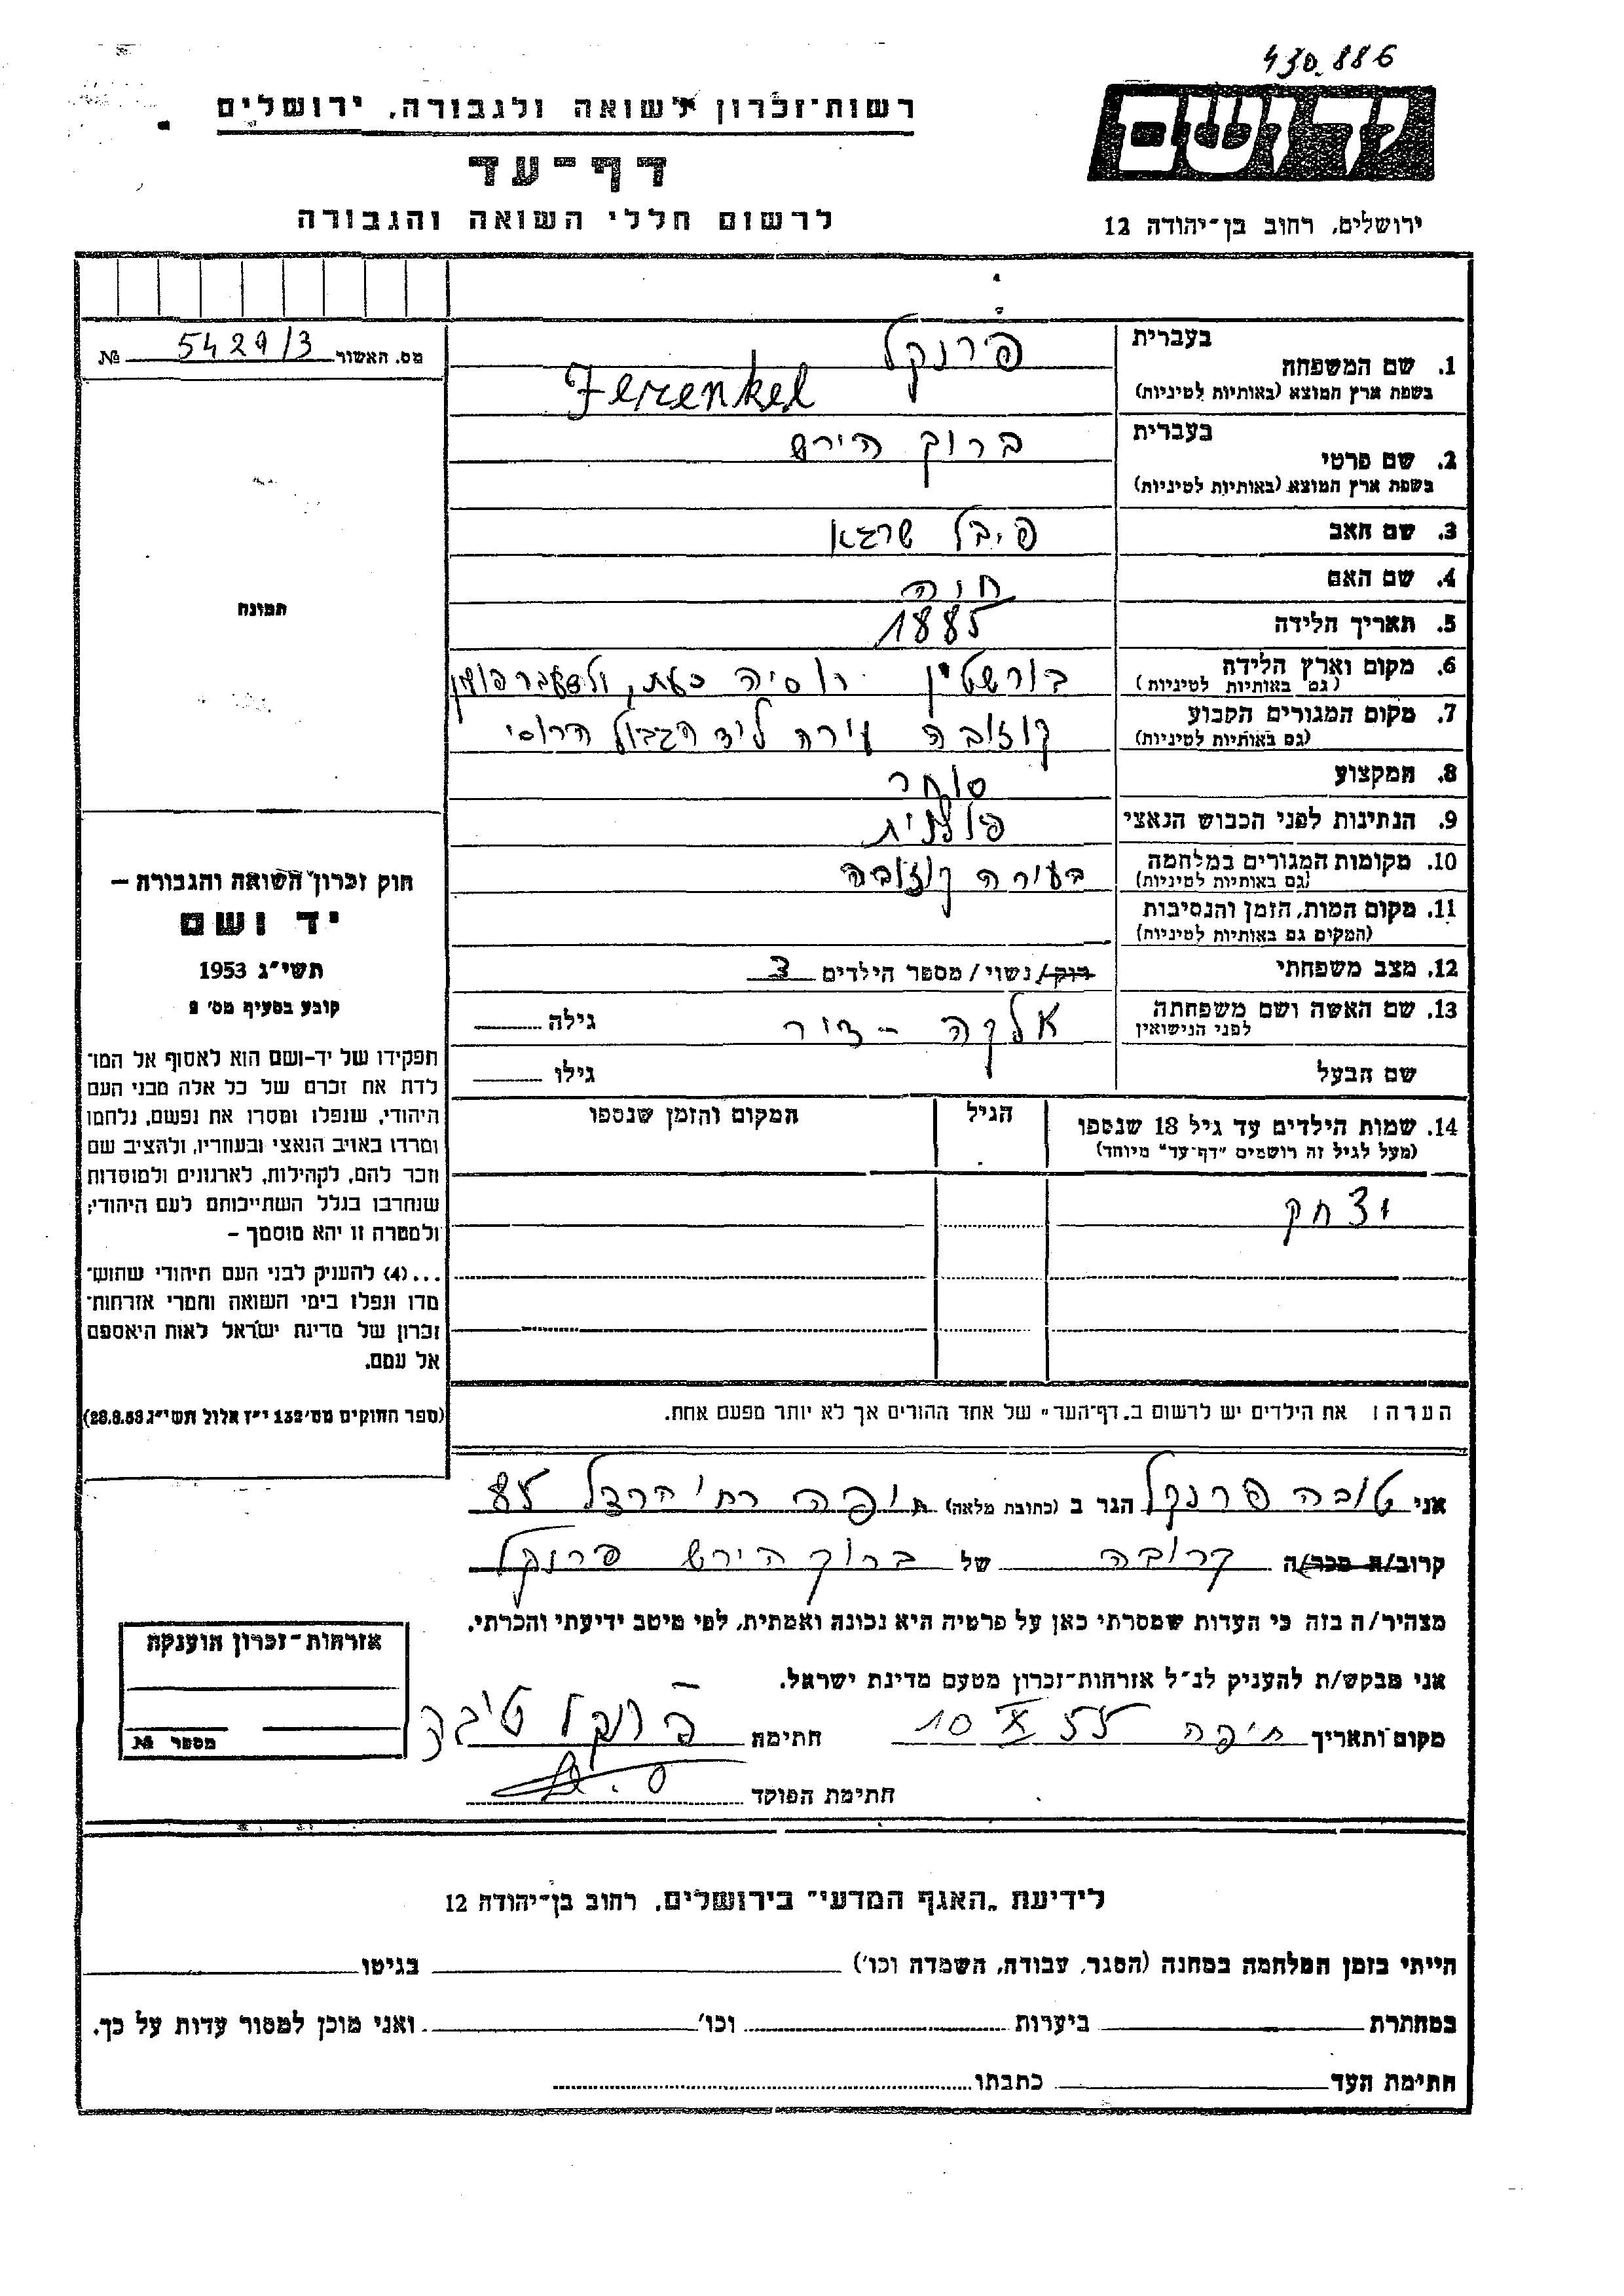 430.886
יד ושם
רשות־זכרון לשואה ולגבורה, ירושלים
דף־עד
לרשום חללי השואה והגבורה
ירושלים, רחוב בן־יהודה 12
מס. האשור 5429/3 №
תמונה
חוק זכרון השואה והגבורה —
יד ושם
תשי״ג 1953
קובע בסעיף מס׳ 2
תפקידו של יד-ושם הוא לאסוף אל המו־
לדת את זכרם של כל אלה מבני העם
היהודי, שנפלו ומסרו את נפשם, נלחמו
ומרדו באויב הנאצי ובעוזריו, ולהציב שם
וזכר להם, לקהילות, לארגונים ולמוסדות
שנחרבו בגלל השתייכותם לעם היהודי;
ולמטרה זו יהא מוסמך —
...(4) להעניק לבני העם היהודי שהוש־
מדו ונפלו בימי השואה והמרי אזרחות־
זכרון של מדינת ישראל לאות היאספם
אל עמם.
(ספר החוקים מס׳ 132 י״ז אלול תשי״ג 28.8.53)
בעברית פירנקל
1. שם המשפחה
בשפת ארץ המוצא (באותיות לטיניות) Ferenkel
בעברית ברוך הירש
2. שם פרטי
בשפת ארץ המוצא (באותיות לטיניות)
3. שם האב פיבל שרגא
4. שם האם חוה
5. תאריך הלידה 1885
6. מקום וארץ הלידה בורשטין רוסיה כעת, ולשעבר פולין
(גם באותיות לטיניות)
7. מקום המגורים הקבוע קוזובה עירה ליד הגבול הרוסי
(גם באותיות לטיניות)
8. המקצוע סוחר
9. הנתינות לפני הכבוש הנאצי פולנית
10. מקומות המגורים במלחמה בעירה קוזובה
(גם באותיות לטיניות)
11. מקום המות, הזמן והנסיבות
(המקום גם באותיות לטיניות)
12. מצב משפחתי רוק/נשוי/מספר הילדים 3
13. שם האשה ושם משפחתה אלקה - דור גילה
לפני הנישואין
שם הבעל גילו
14. שמות הילדים עד גיל 18 שנספו הגיל המקום והזמן שנספו
(מעל לגיל זה רושמים ״דף־עד״ מיוחד)
יצחק
הערה: את הילדים יש לרשום ב„דף־העד״ של אחד ההורים אך לא יותר מפעם אחת.
אני טובה פרנקל הגר ב (כתובת מלאה) חיפה רח׳ הרצל 85
קרוב/ה מכר/ה קרובה של ברוך הירש פרנקל
מצהיר/ה בזה כי העדות שמסרתי כאן על פרטיה היא נכונה ואמתית, לפי מיטב ידיעתי והכרתי.
אני מבקש/ת להעניק לנ״ל אזרחות־זכרון מטעם מדינת ישראל.
מקום ותאריך חיפה 10 X 55 חתימה פרנקל טובה
חתימת הפוקד
אזרחות־זכרון הוענקה
מספר №
לידיעת „האגף המדעי״ בירושלים, רחוב בן־יהודה 12
הייתי בזמן המלחמה במחנה (הסגר, עבודה, השמדה וכו׳) בגיטו
במחתרת ביערות וכו׳ ואני מוכן למסור עדות על כך.
חתימת העד כתבתו